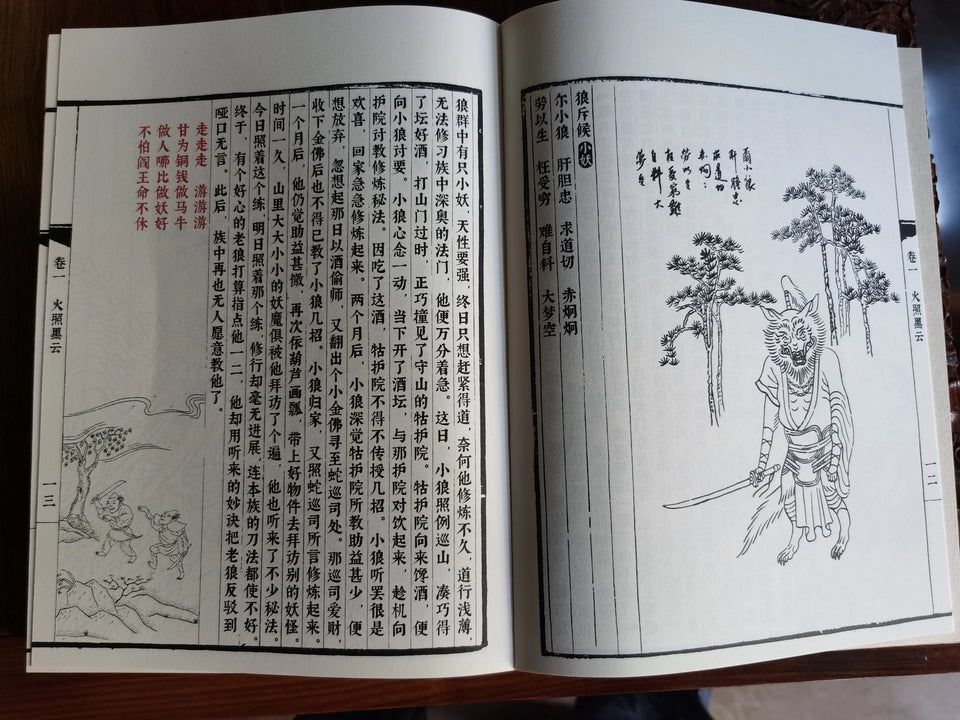 狼斥候 小妖
尔小狼 肝胆忠 求道切 赤炯炯
劳以生 枉受穷 难自料 大梦空
卷一 火照黑云
一二
狼群中有只小妖,天性要强,终日只想赶紧得道,奈何他修炼不久,道行浅薄,
无法修习族中深奥的法门,他便万分着急。这日,小狼照例巡山,凑巧得
了坛好酒,打山门过时,正巧撞见了守山的牯护院。牯护院向来馋酒,便
向小狼讨要。小狼心念一动,当下开了酒坛,与那护院对饮起来,趁机向
护院讨教修炼秘法。因吃了这酒,牯护院不得不传授几招。小狼听罢很是
欢喜,回家急急修炼起来。两个月后,小狼深觉牯护院所教助益甚少,便
想放弃,忽想起那日以酒偷师,又翻出个小金佛寻至蛇巡司处。那巡司爱财,
收下金佛后也不得已教了小狼几招。小狼归家,又照蛇巡司所言修炼起来。
一个月后,他仍觉助益甚微,再次依葫芦画瓢,带上好物件去拜访别的妖怪。
时间一久,山里大大小小的妖魔俱被他拜访了个遍,他也听来了不少秘法。
今日照着这个练,明日照着那个练,修行却毫无进展,连本族的刀法都使不好。
终于,有个好心的老狼打算指点他一二,他却用听来的妙诀把老狼反驳到
哑口无言。此后,族中再也无人愿意教他了。
走走走 游游游
甘为铜钱做马牛
做人哪比做妖好
不怕阎王命不休
卷一 火照黑云
一三